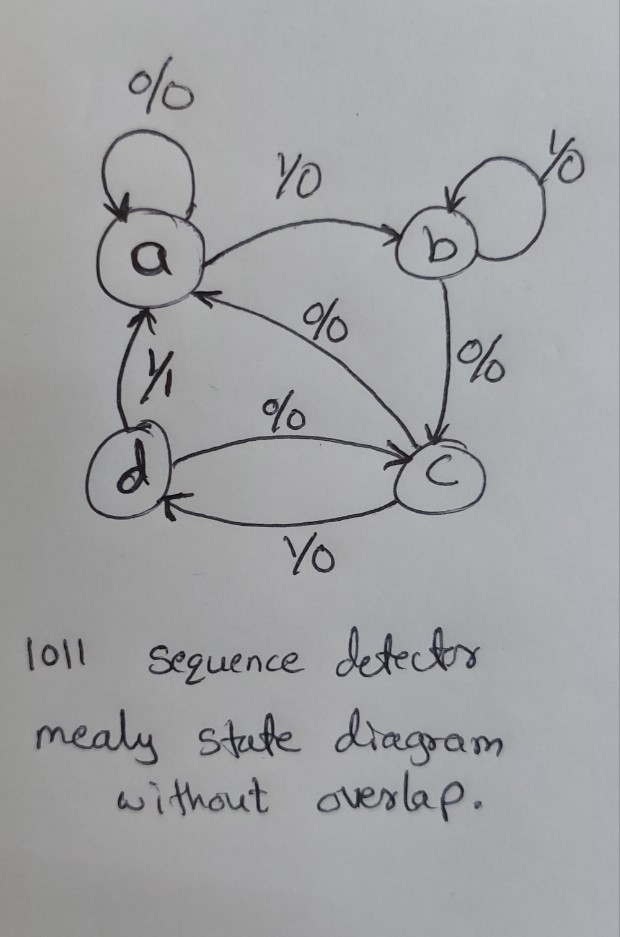 0/0
1/0
1/0
a
b
0/0
0/0
1/1
0/0
d
c
1/0
1011 sequence detector
mealy state diagram
without overlap.